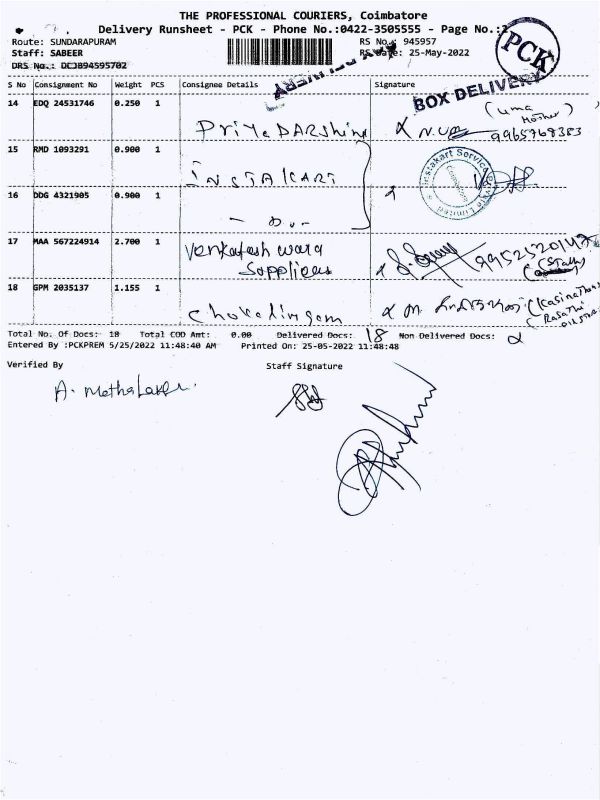 THE PROFESSIONAL COURIERS, Coimbatore
Delivery Runsheet - PCK - Phone No.:0422-3505555 - Page No.:
Route: SUNDARAPURAM RS No.: 945957
Staff: SABEER RS Date: 25-May-2022
DRS No.: DCJB94595702
PCK
BOX DELIVERY
S No Consignment No Weight PCS Consignee Details Signature
14 EDQ 24531746 0.250 1 PriyaDARShini (Uma Mother) 9965768383
15 RMD 1093291 0.900 1 INSTAKART
Instakart Services Private Limited
Coimbatore
16 DDG 4321905 0.900 1 - Do -
17 MAA 567224914 2.700 1 Venkatesh wara Suppliers 9952520147 (Staff)
18 GPM 2035137 1.155 1 Chokalingam
Total No. Of Docs: 18 Total COD Amt: 0.00 Delivered Docs: 18 Non Delivered Docs:
Entered By :PCKPREM 5/25/2022 11:48:40 AM Printed On: 25-05-2022 11:48:48
Verified By Staff Signature